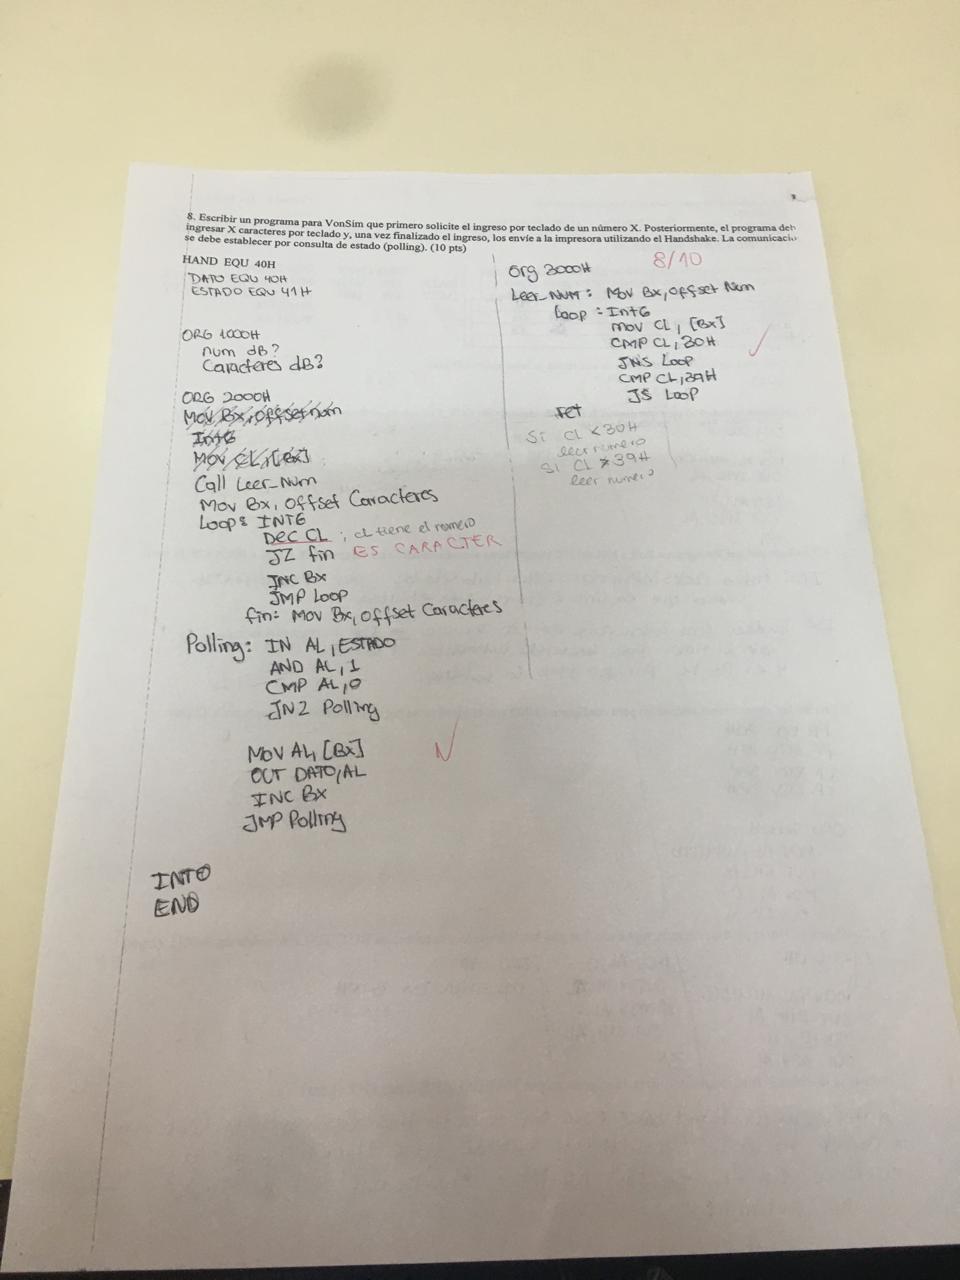 8. Escribir un programa para VonSim que primero solicite el ingreso por teclado de un número X. Posteriormente, el programa deb
ingresar X caracteres por teclado y, una vez finalizado el ingreso, los envíe a la impresora utilizando el Handshake. La comunicació
se debe establecer por consulta de estado (polling). (10 pts)
HAND EQU 40H
DATO EQU 40H
ESTADO EQU 41H
ORG 1000H
num db?
Caracteres db?
ORG 2000H
Mov Bx, offset num
Int6
MOV CL, [Bx]
Call Leer_Num
Mov Bx, Offset Caracteres
Loop: INT6
DEC CL ; CL tiene el numero
JZ fin ES CARACTER
INC Bx
JMP Loop
fin: Mov Bx, Offset Caracteres
Polling: IN AL, ESTADO
AND AL, 1
CMP AL, 0
JNZ Polling
MOV AL, [Bx]
OUT DATO, AL
INC Bx
JMP Polling
INT0
END
8/10
Org 3000H
Leer_NUM: Mov Bx, Offset Num
Loop: Int6
mov CL, [Bx]
CMP CL, 30H
JNS Loop
CMP CL, 39H
JS Loop
ret
Si CL < 30H
leer numero
Si CL > 39H
leer numero